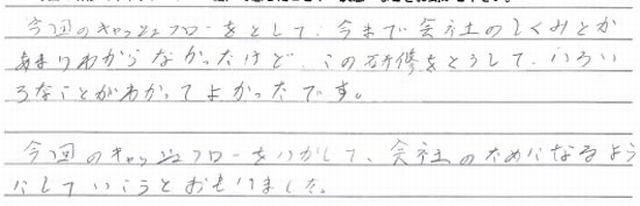 今回のキャッシュフローをとして、今まで会社のしくみとか
あまりわからなかったけど、この研修をとうして、いろい
ろなことがわかってよかったです。
今回のキャッシュフローをいかして、会社のためになるよう
にしていこうとおもいました。